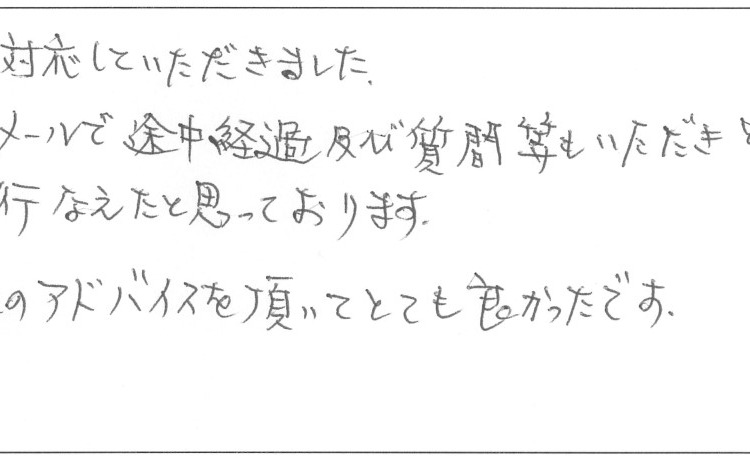 対応していただきました.
メールで途中経過及び質問等もいただき
行なえたと思っております.
のアドバイスを頂いてとても良かったです.